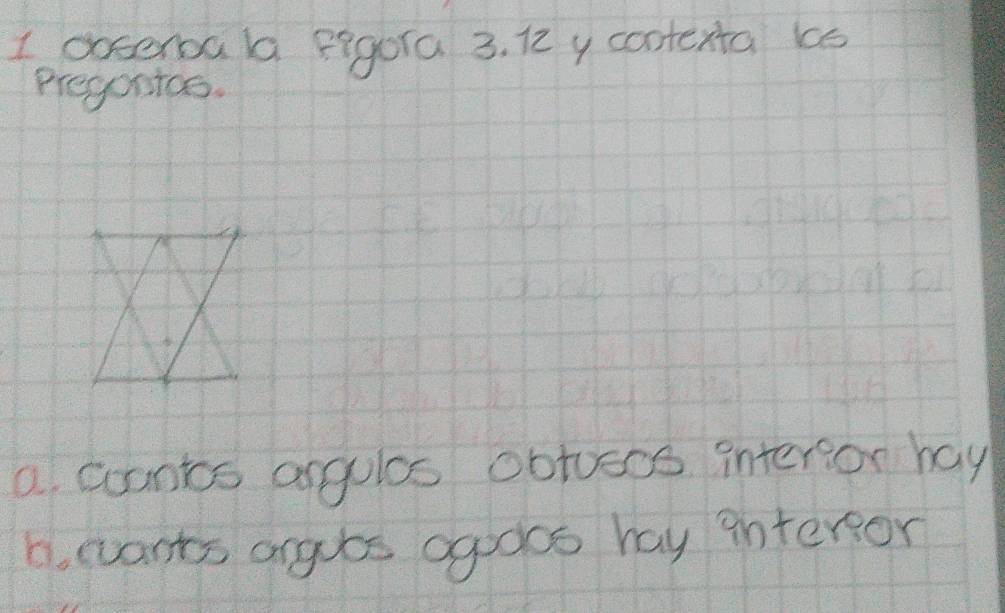 1 obserba la figora 3.12 y contexta las
Pregontas.
a. coantos angulos obtusos interior hay
b. cuantos angulos agudos hay interior